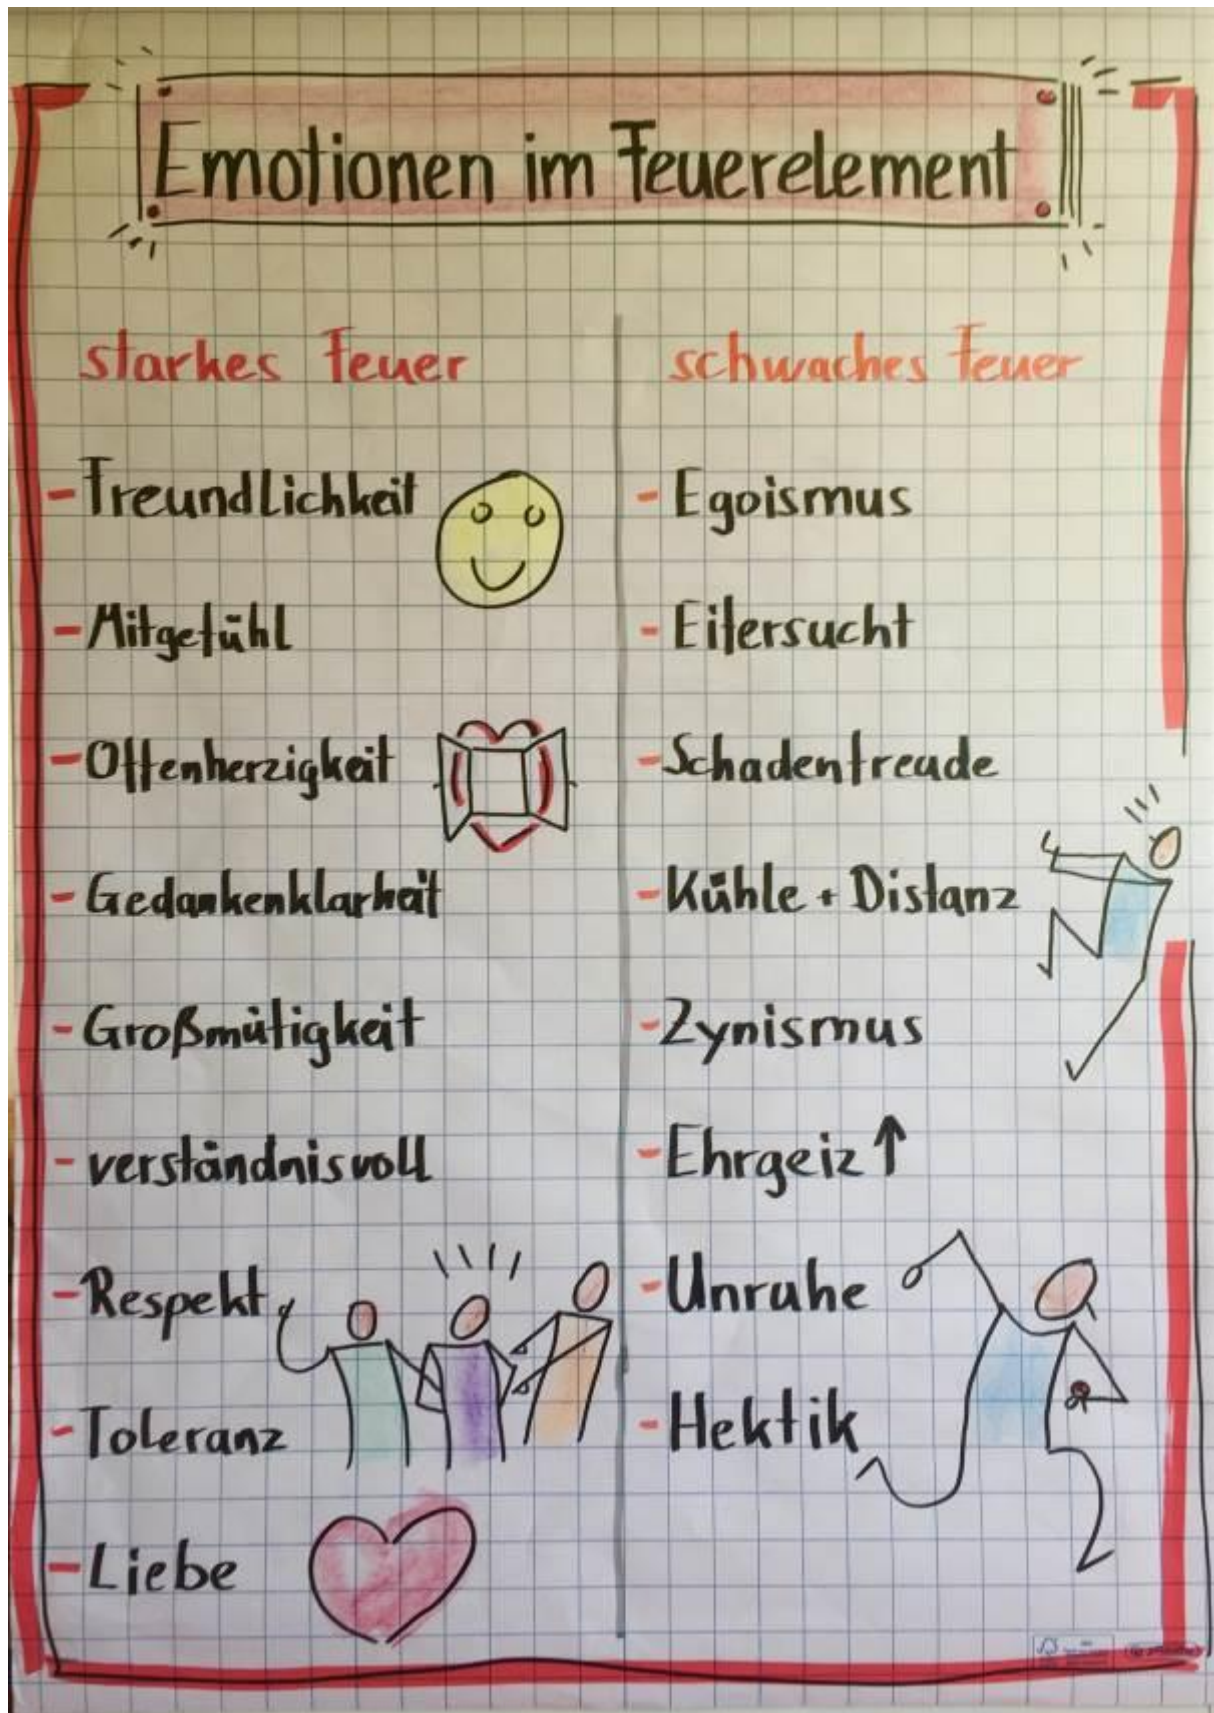 Emotionen im Feuerelement
starkes Feuer
- Freundlichkeit
- Mitgefühl
- Offenherzigkeit
- Gedankenklarheit
- Großmütigkeit
- verständnisvoll
- Respekt
- Toleranz
- Liebe
schwaches Feuer
- Egoismus
- Eifersucht
- Schadenfreude
- Kühle + Distanz
- Zynismus
- Ehrgeiz ↑
- Unruhe
- Hektik